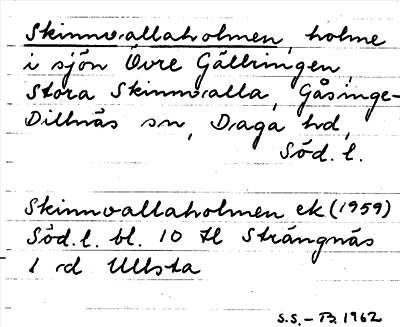 Skinnvallaholmen, holme
i sjön Övre Gällringen,
Stora Skinnvalla, Gåsinge-
Dillnäs sn, Daga hd,
Söd. l.
Skinnvallaholmen ek (1959)
Söd. l. bl. 10 H Strängnäs
1 rd Ullsta
S.S. – B. 1962